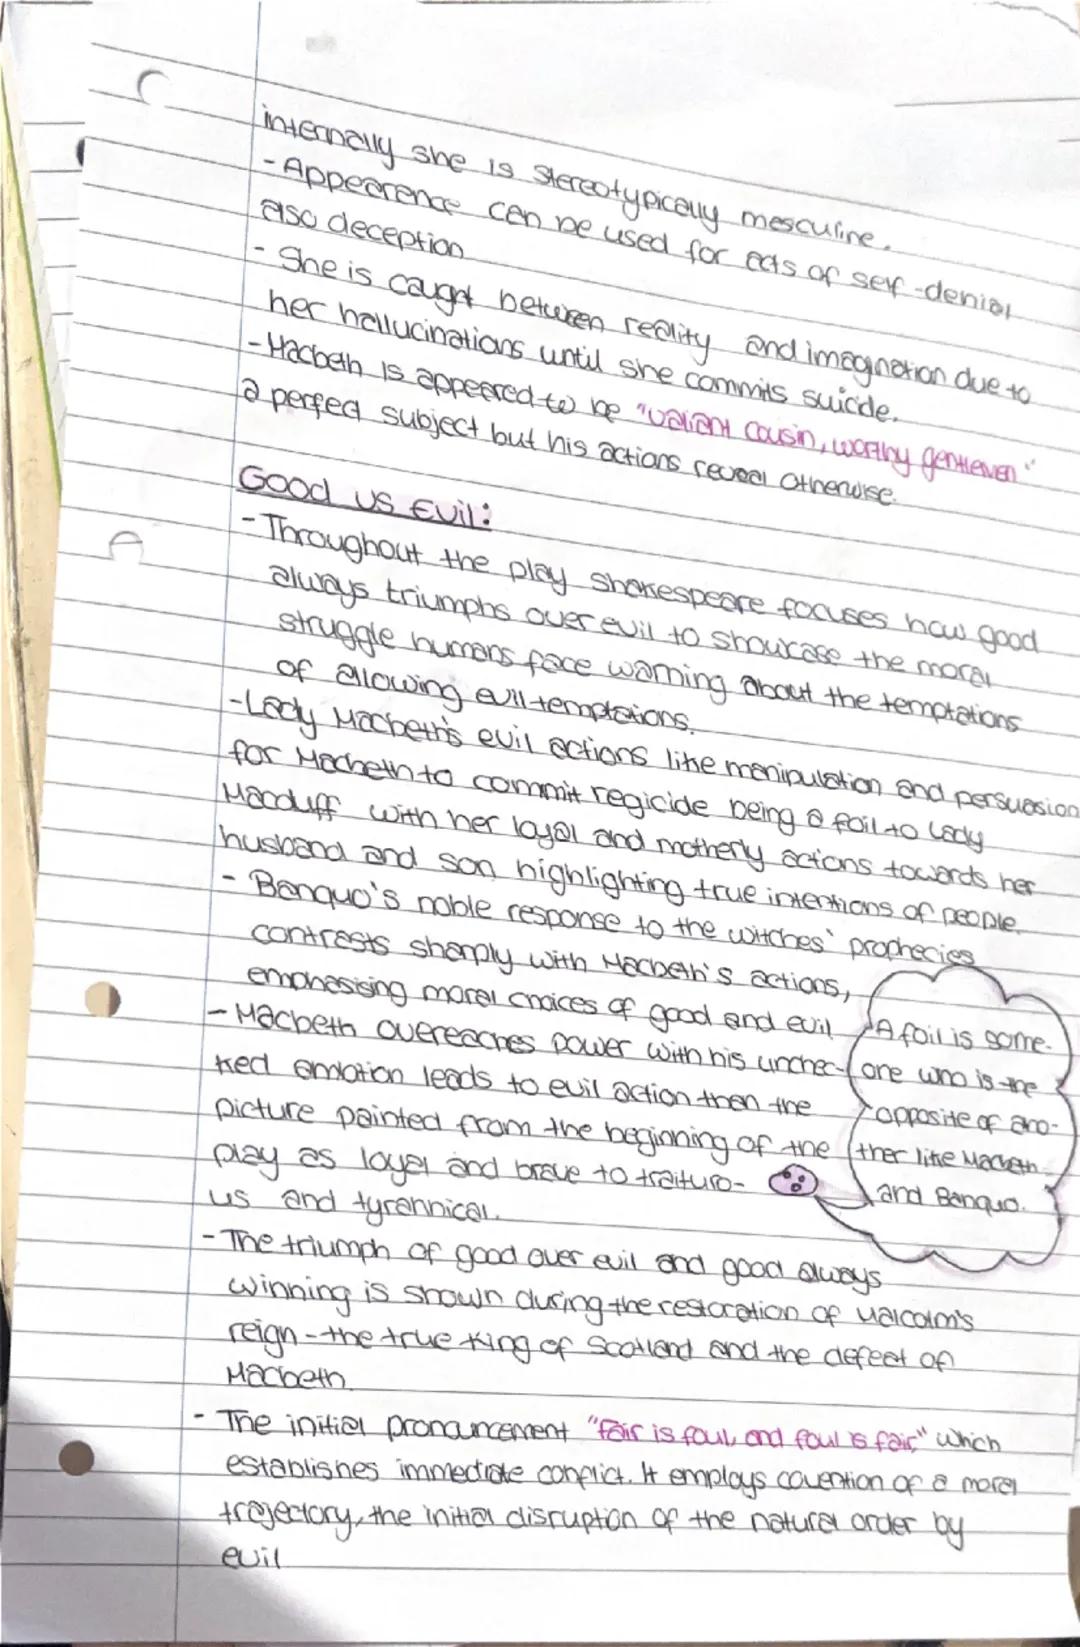 internally she is stereotypically mesculine.
- Appearence can be used for acts of self-denial
also deception
- She is caught between reality and imagination due to
her hallucinations until she commits suicide.
- Macbeth is appeared to be "valient cousin, worthy gentlemen"
a perfect subject but his actions reveal otherwise.
Good vs Evil:
- Throughout the play shakespeare focuses how good
always triumphs over evil to showcase the moral
struggle humans face warning about the temptations
of allowing evil temptations.
- Lady Macbeth's evil actions like manipulation and persuasion
for Macbeth to commit regicide being a foil to Lady
Macduff with her loyal and motherly actions towards her
husband and son highlighting true intentions of people.
- Banquo's noble response to the witches' prophecies
contrasts sharply with Macbeth's actions,
emphasising moral choices of good and evil
- Macbeth overeaches power with his unchec-
ked ambition leads to evil action then the
picture painted from the beginning of the
play as loyal and brave to traituro-
us and tyrannical.
A foil is some-
one who is the
opposite of ano-
ther like Macbeth
and Banquo.
- The triumph of good over evil and good always
winning is shown during the restoration of Malcolm's
reign - the true king of Scotland and the defeat of
Macbeth.
- The initial pronouncement "fair is foul, and foul is fair" which
establishes immediate conflict. It employs covention of a moral
trajectory, the initial disruption of the natural order by
evil